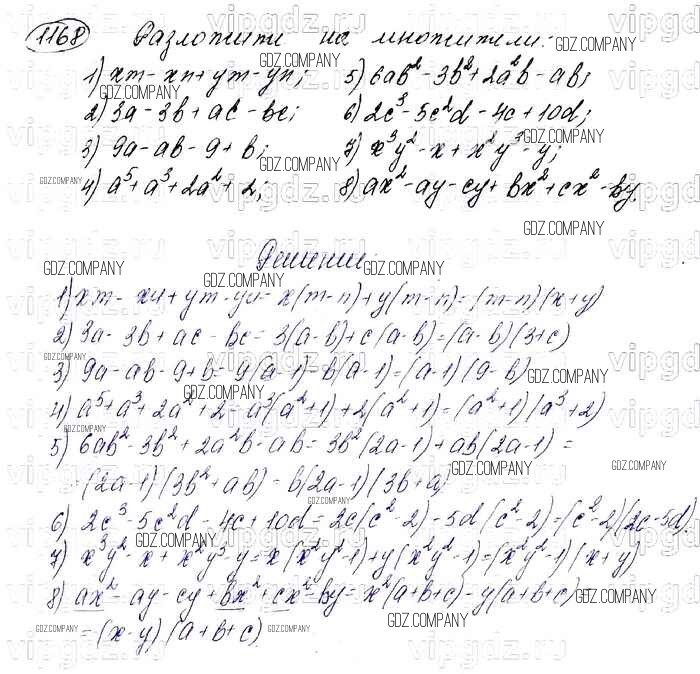 1168 Разложити на множители:
1) xm - xn + ym - yn; 5) 6ab² - 3b² + 2a²b - ab;
2) 3a - 3b + ac - bc; 6) 2c³ - 5c²d - 4c + 10d;
3) 9a - ab - 9 + b; 7) x³y² - x + x²y³ - y;
4) a⁵ + a³ + 2a² + 2; 8) ax² - ay - cy + bx² + cx² - by.
Решение.
1) xm - xn + ym - yn = x(m-n) + y(m-n) = (m-n)(x+y)
2) 3a - 3b + ac - bc = 3(a-b) + c(a-b) = (a-b)(3+c)
3) 9a - ab - 9 + b = 9(a-1) - b(a-1) = (a-1)(9-b)
4) a⁵ + a³ + 2a² + 2 = a³(a²+1) + 2(a²+1) = (a²+1)(a³+2)
5) 6ab² - 3b² + 2a²b - ab = 3b²(2a-1) + ab(2a-1) =
= (2a-1)(3b²+ab) = b(2a-1)(3b+a)
6) 2c³ - 5c²d - 4c + 10d = 2c(c²-2) - 5d(c²-2) = (c²-2)(2c-5d)
7) x³y² - x + x²y³ - y = x(x²y²-1) + y(x²y²-1) = (x²y²-1)(x+y)
8) ax² - ay - cy + bx² + cx² - by = x²(a+b+c) - y(a+b+c) =
= (x-y)(a+b+c)
GDZ.COMPANY
vipgdz.ru